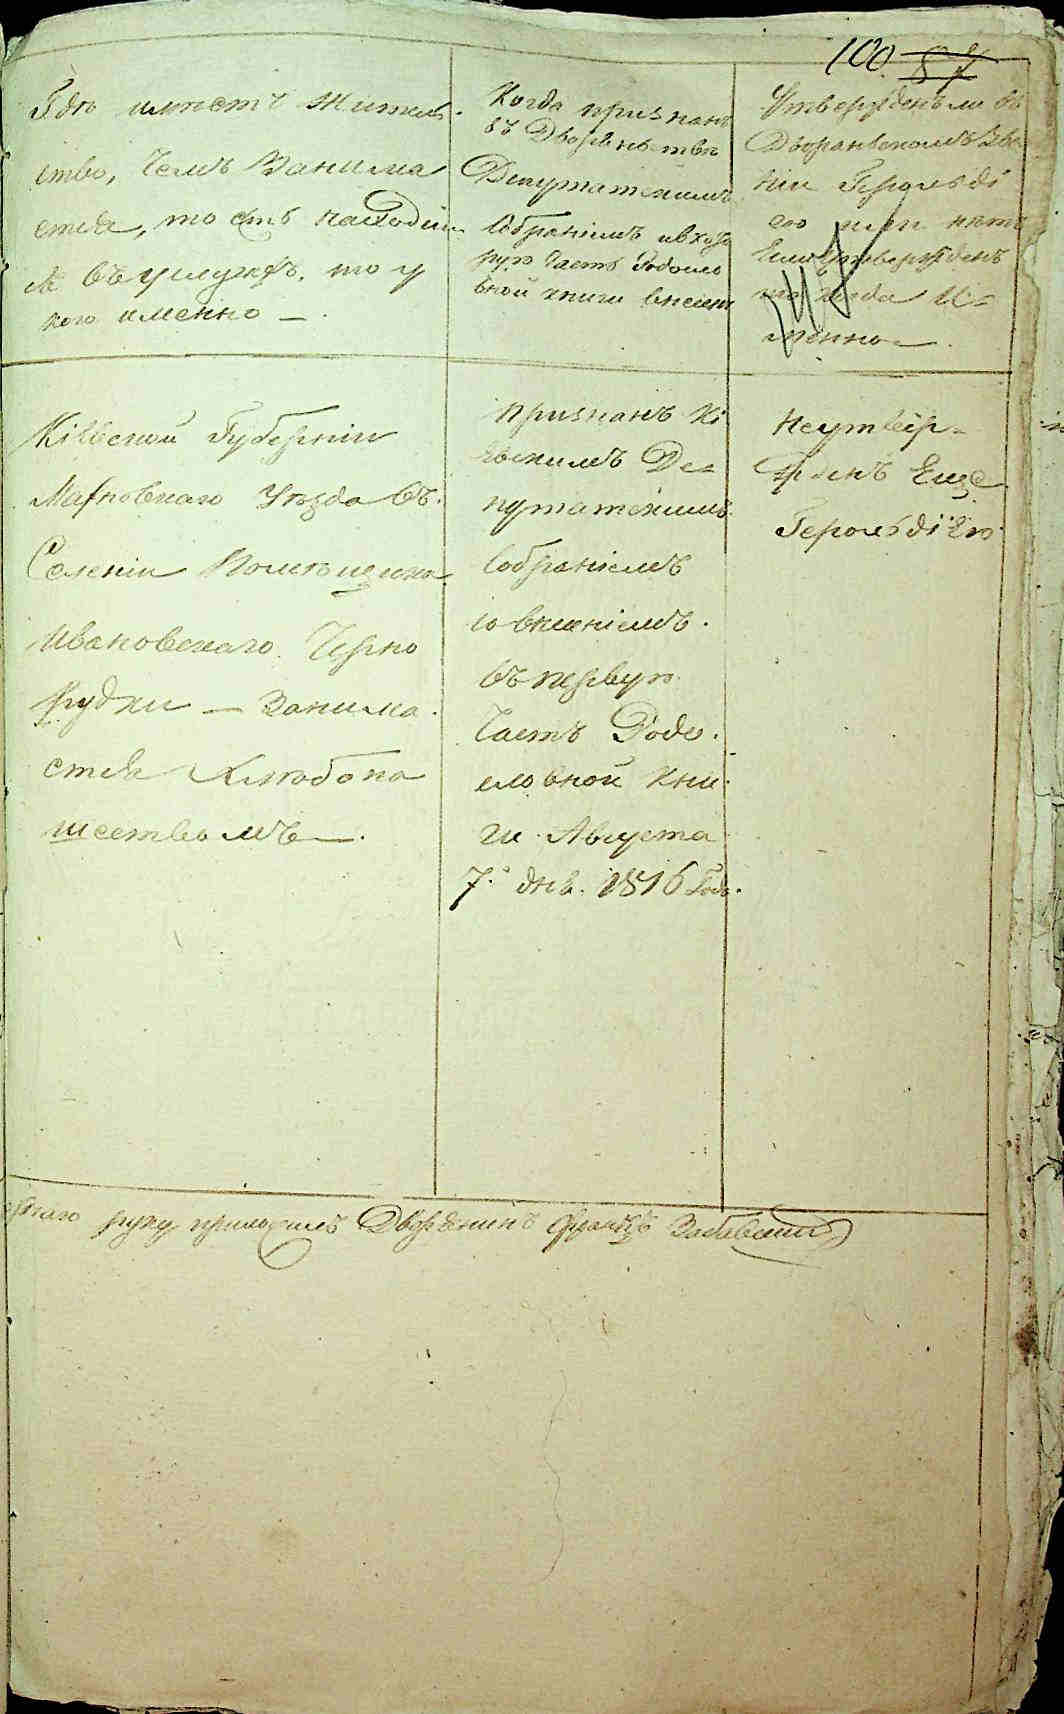 100 87
Где имѣетъ житель-
ство, Чемъ Занима
ется, то есть находит
ся въ услугѣ, то у
кого именно —
Когда признанъ
въ Дворянство
Депутатскимъ
Собраніемъ ивкото
рую Часть Родосло
вной книги внесенъ
Утвержденъ ли въ
Дворянскомъ Зва
ніи Герольді
ею или нѣтъ
Если утвержденъ
то когда И=
менно —
Кіевской Губерніи
Махновскаго Уѣзда въ
Селеніи Помѣщика
Ивановскаго Черно
рудки — Занима
ется Хлѣбопа
шествомъ —
признанъ Кі
евскимъ Де=
путатскимъ
Собраніемъ
со внесеніемъ
въ первую
Часть Родо
словной Кни
ги Августа
7.º дня. 1816 Года.
Неутвер-
жденъ Еще
Герольдіею
руку приложилъ Дворянинъ Францъ